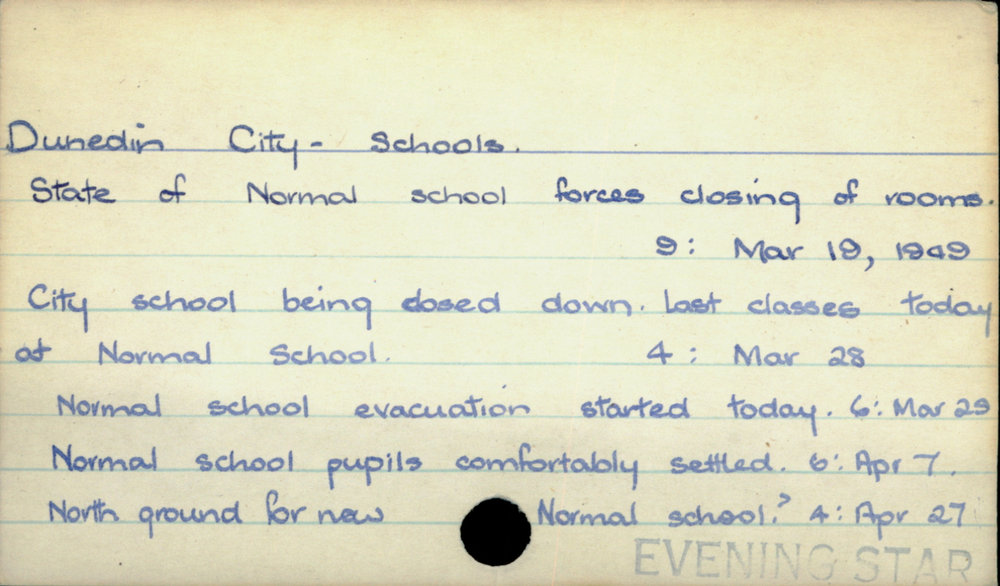 Dunedin City - Schools.
State of Normal school forces closing of rooms.
9: Mar 19, 1949
City school being closed down. Last classes today
at Normal School. 4: Mar 28
Normal school evacuation started today. 6: Mar 29
Normal school pupils comfortably settled. 6: Apr 7.
North ground for new Normal school? 4: Apr 27
EVENING STAR